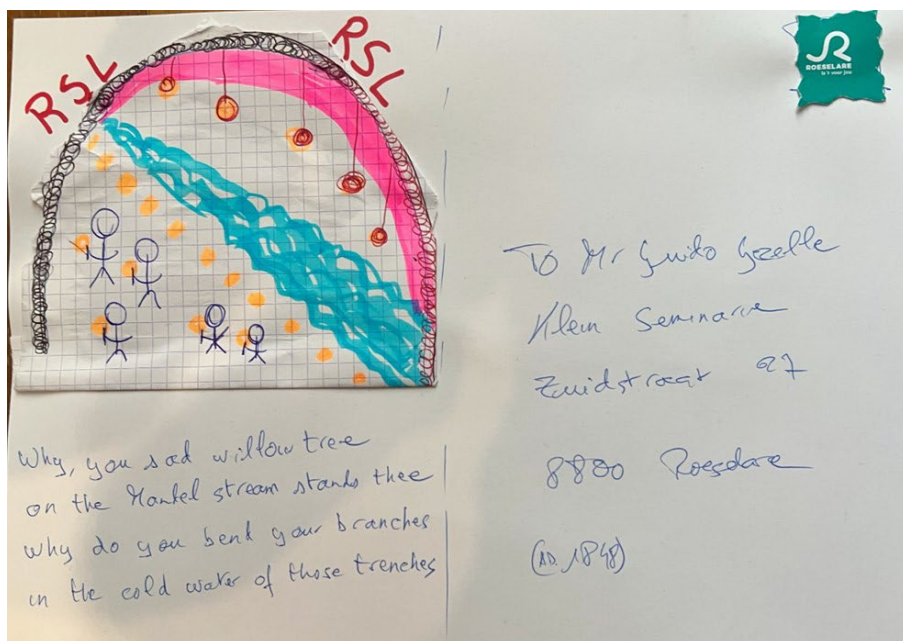 RSL
RSL
ROESELARE
is 't voor jou
Why, you sad willow tree
on the Mandel stream stands thee
why do you bend your branches
in the cold water of those trenches
To Mr Guido Gezelle
Klein Seminarie
Zuidstraat 27
8800 Roeselare
(AD. 1848)